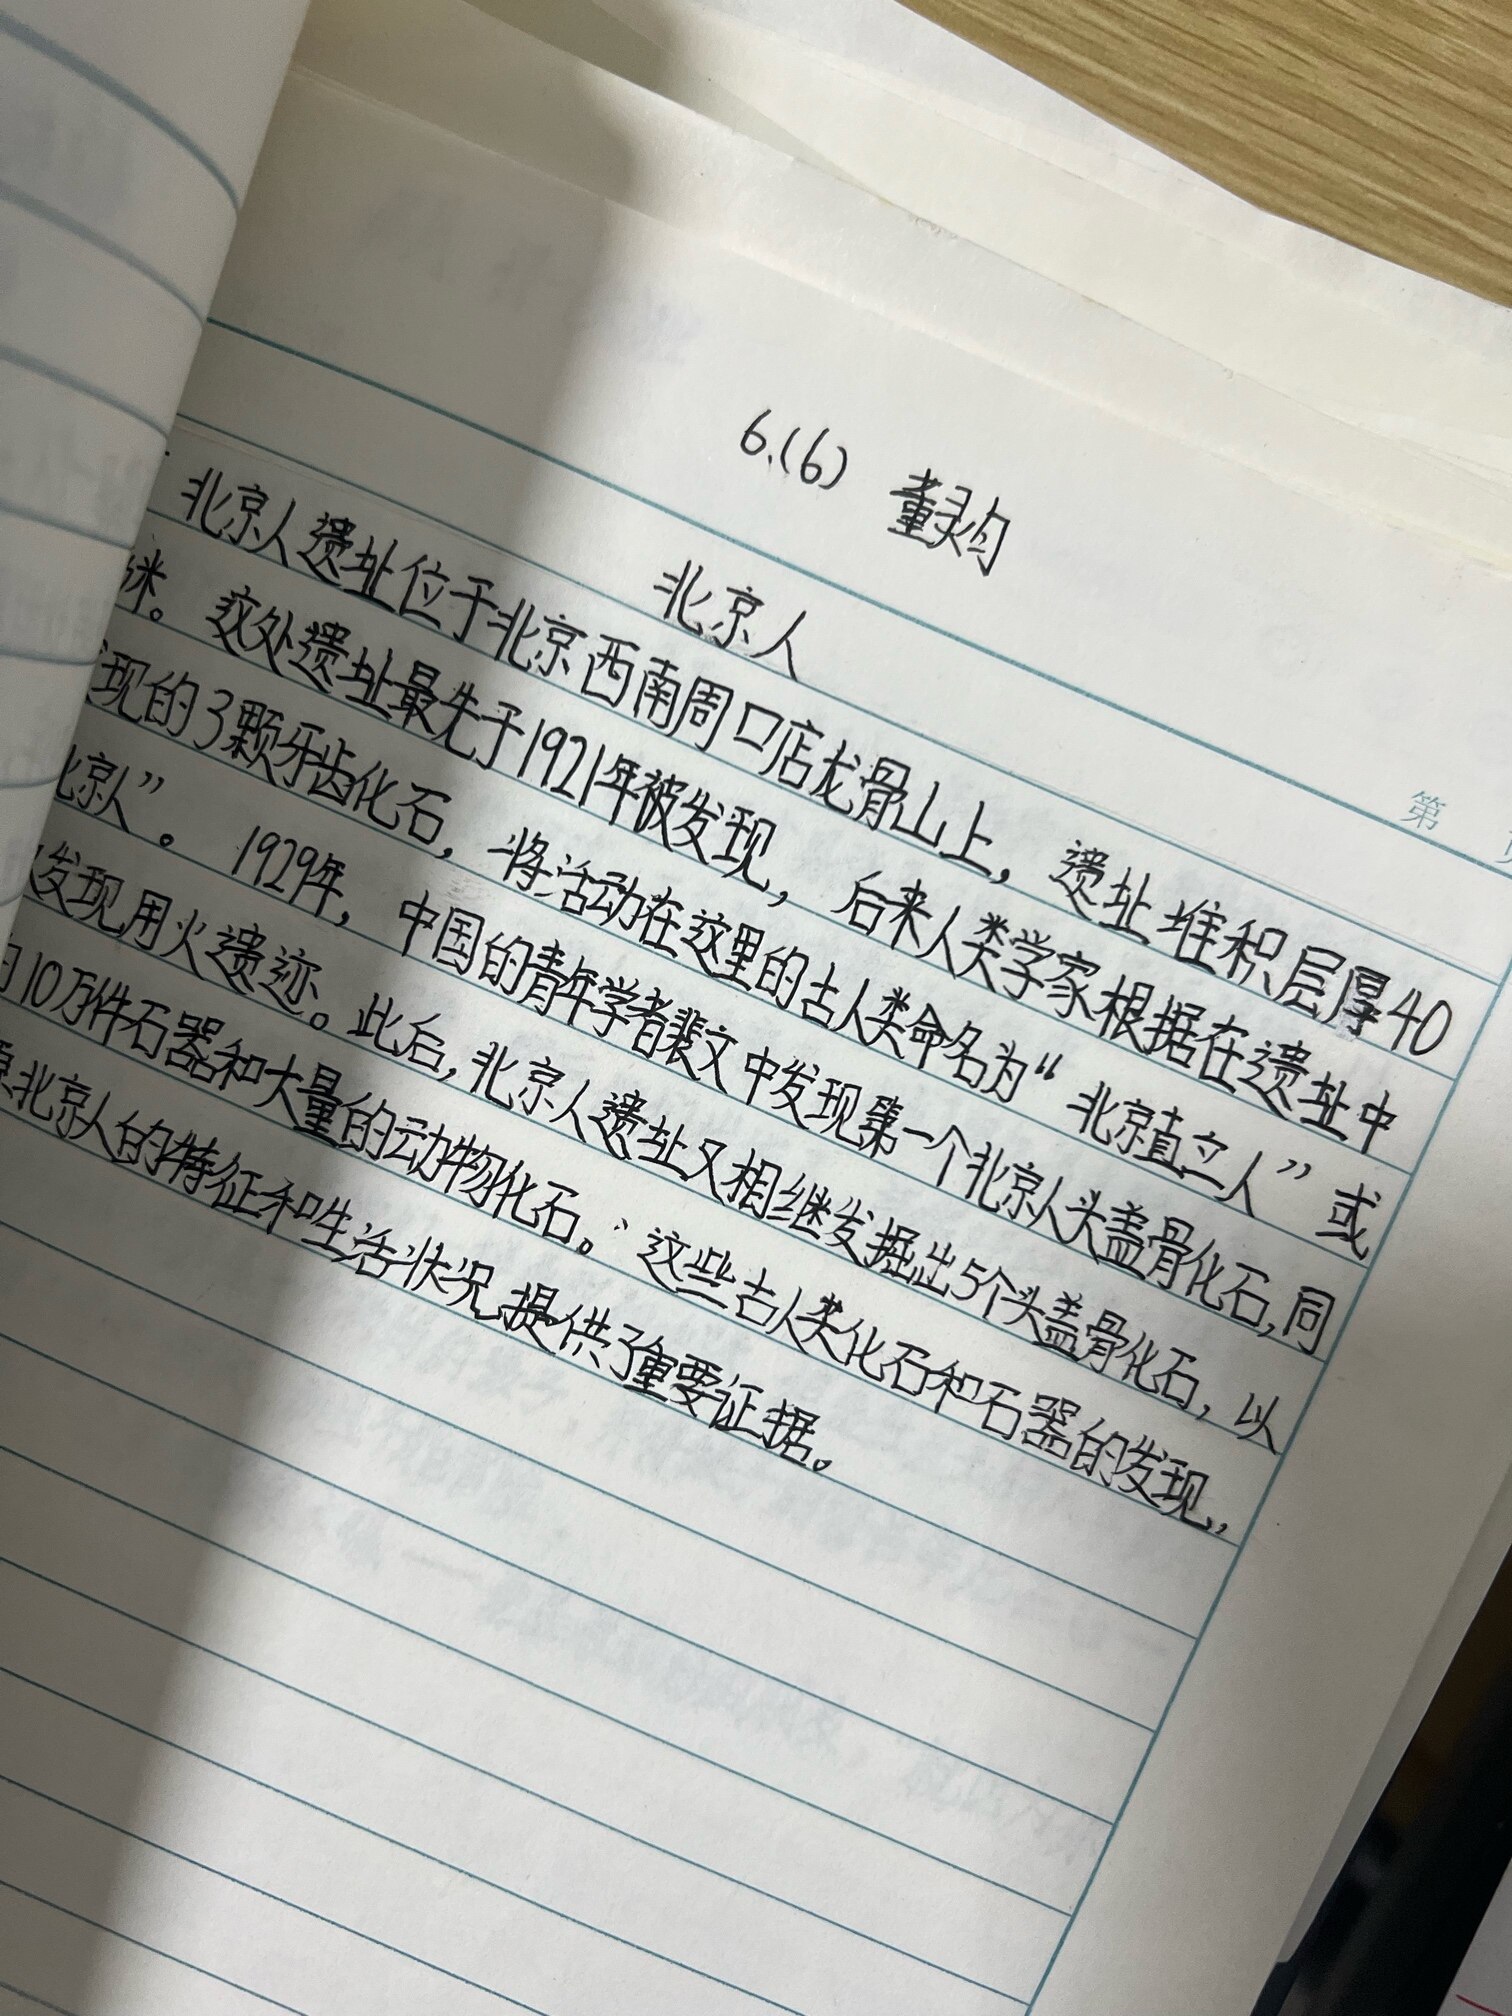 6.(6) 董录均
北京人
第
北京人遗址位于北京西南周口店龙骨山上，遗址堆积层厚40
米。这处遗址最先于1921年被发现，后来人类学家根据在遗址中
现的3颗牙齿化石，将活动在这里的古人类命名为“北京直立人”或
北京人”。1929年，中国的青年学者裴文中发现第一个北京人头盖骨化石，同
发现用火遗迹。此后，北京人遗址又相继发掘出5个头盖骨化石，以
10万件石器和大量的动物化石。这些古人类化石和石器的发现，
北京人的特征和生活状况提供了重要证据。